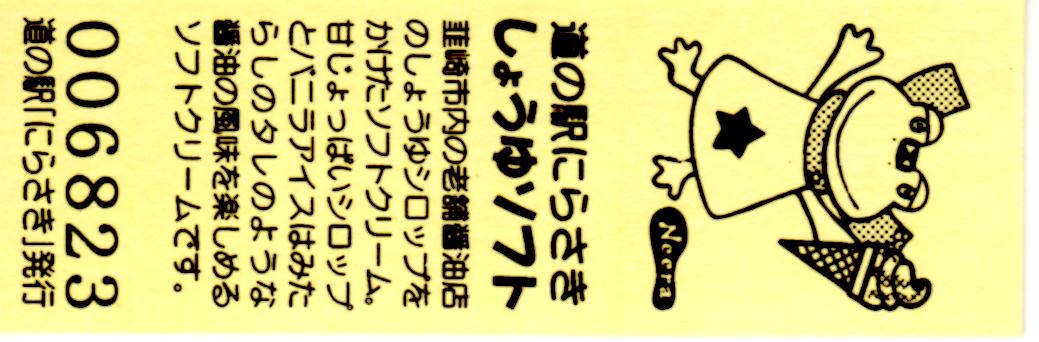 Neera
道の駅にらさき
しょうゆソフト
韮崎市内の老舗醤油店
のしょうゆシロップを
かけたソフトクリーム。
甘じょっぱいシロップ
とバニラアイスはみた
らしのタレのような
醤油の風味を楽しめる
ソフトクリームです。
006823
道の駅「にらさき」発行